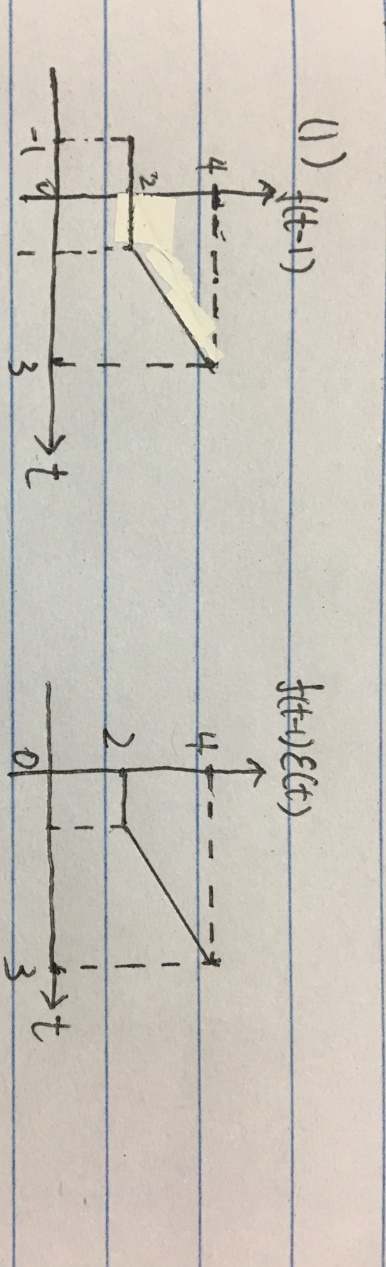 (1)
f(t-1)
4
2
-1
0
1
3
t
f(t-1)ε(t)
4
2
0
3
t